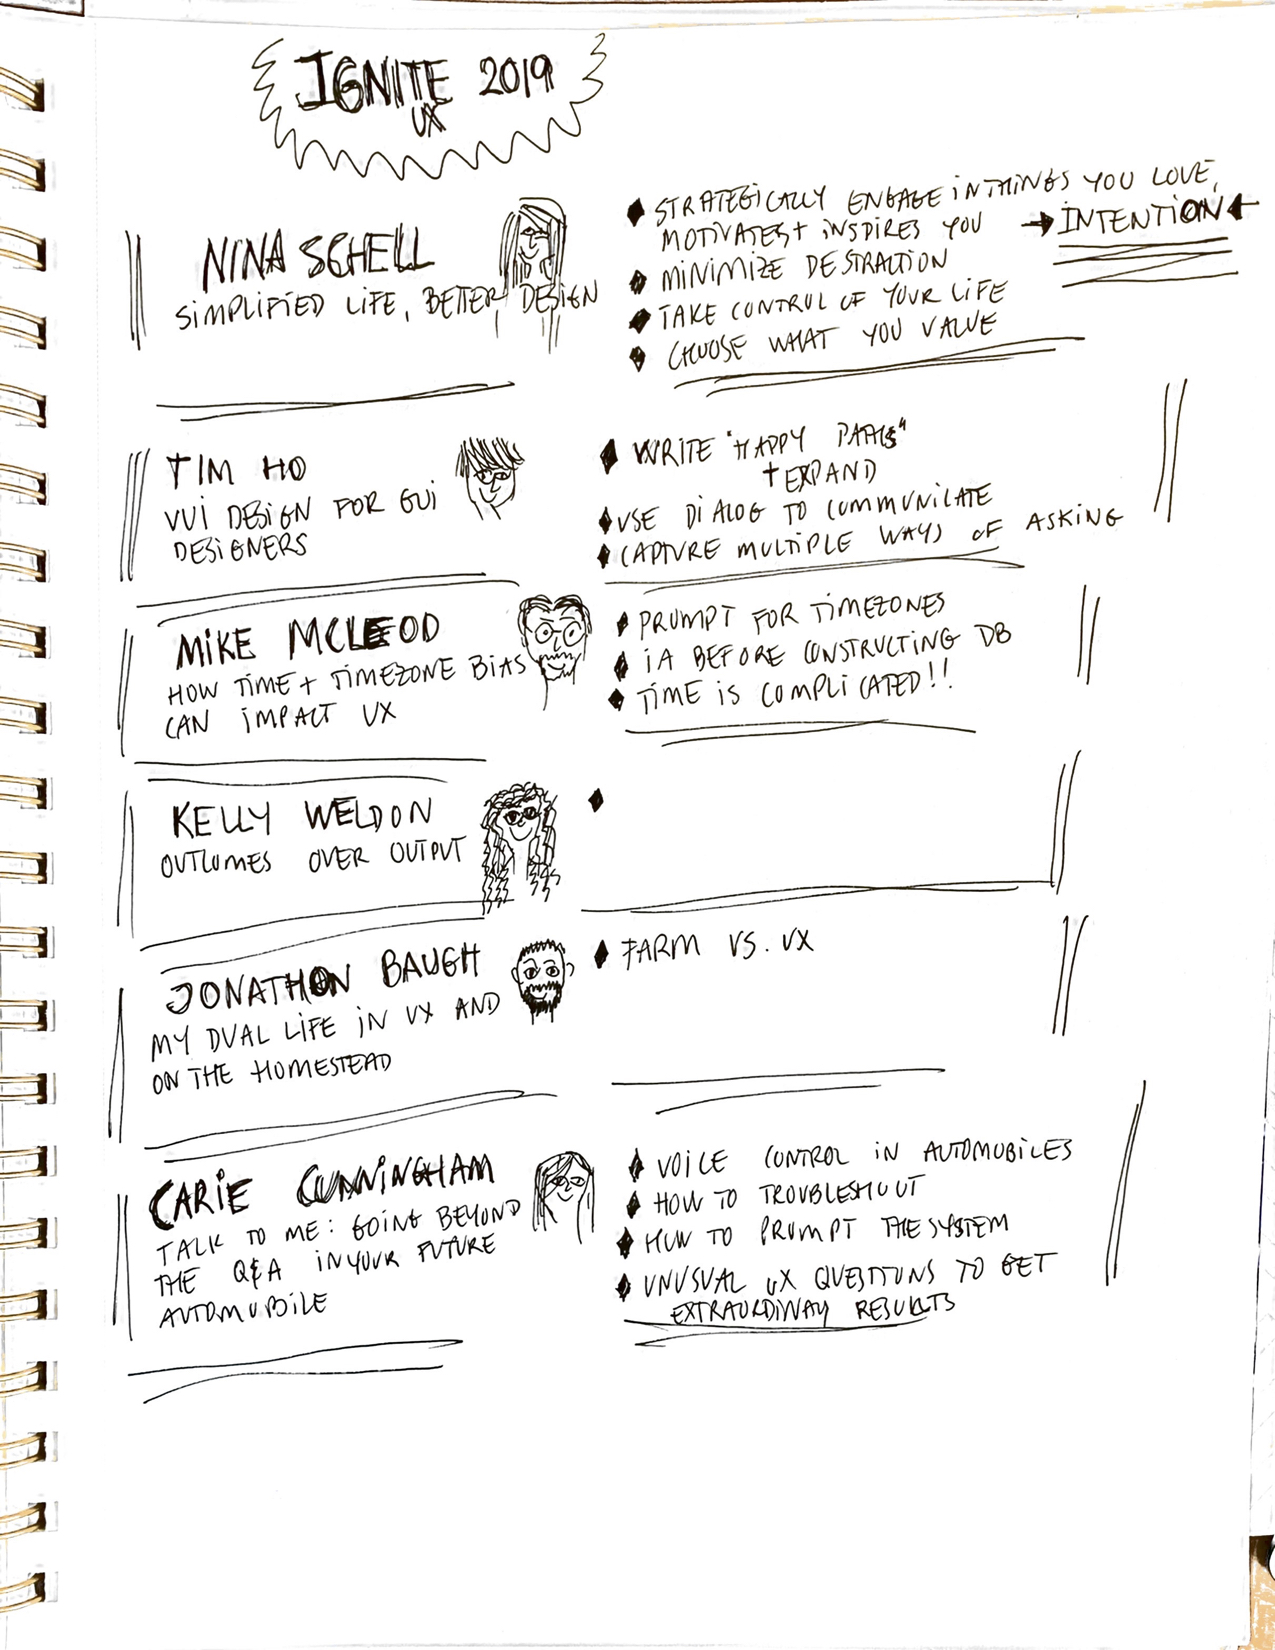 IGNITE 2019
UX
NINA SCHELL
SIMPLIFIED LIFE, BETTER DESIGN
STRATEGICALLY ENGAGE IN THINGS YOU LOVE,
MOTIVATES + INSPIRES YOU
INTENTION
MINIMIZE DESTRACTION
TAKE CONTROL OF YOUR LIFE
CHOOSE WHAT YOU VALUE
TIM HO
VUI DESIGN FOR GUI
DESIGNERS
WRITE "HAPPY PATHS"
+ EXPAND
USE DIALOG TO COMMUNICATE
CAPTURE MULTIPLE WAYS OF ASKING
MIKE MCLEOD
HOW TIME + TIMEZONE BIAS
CAN IMPACT UX
PROMPT FOR TIMEZONES
IA BEFORE CONSTRUCTING DB
TIME IS COMPLICATED!!
KELLY WELDON
OUTCOMES OVER OUTPUT
JONATHON BAUGH
MY DUAL LIFE IN UX AND
ON THE HOMESTEAD
FARM VS. UX
CARIE CUNNINGHAM
TALK TO ME: GOING BEYOND
THE Q&A IN YOUR FUTURE
AUTOMOBILE
VOICE CONTROL IN AUTOMOBILES
HOW TO TROUBLESHOOT
HOW TO PROMPT THE SYSTEM
UNUSUAL UX QUESTIONS TO GET
EXTRAORDINARY RESULTS